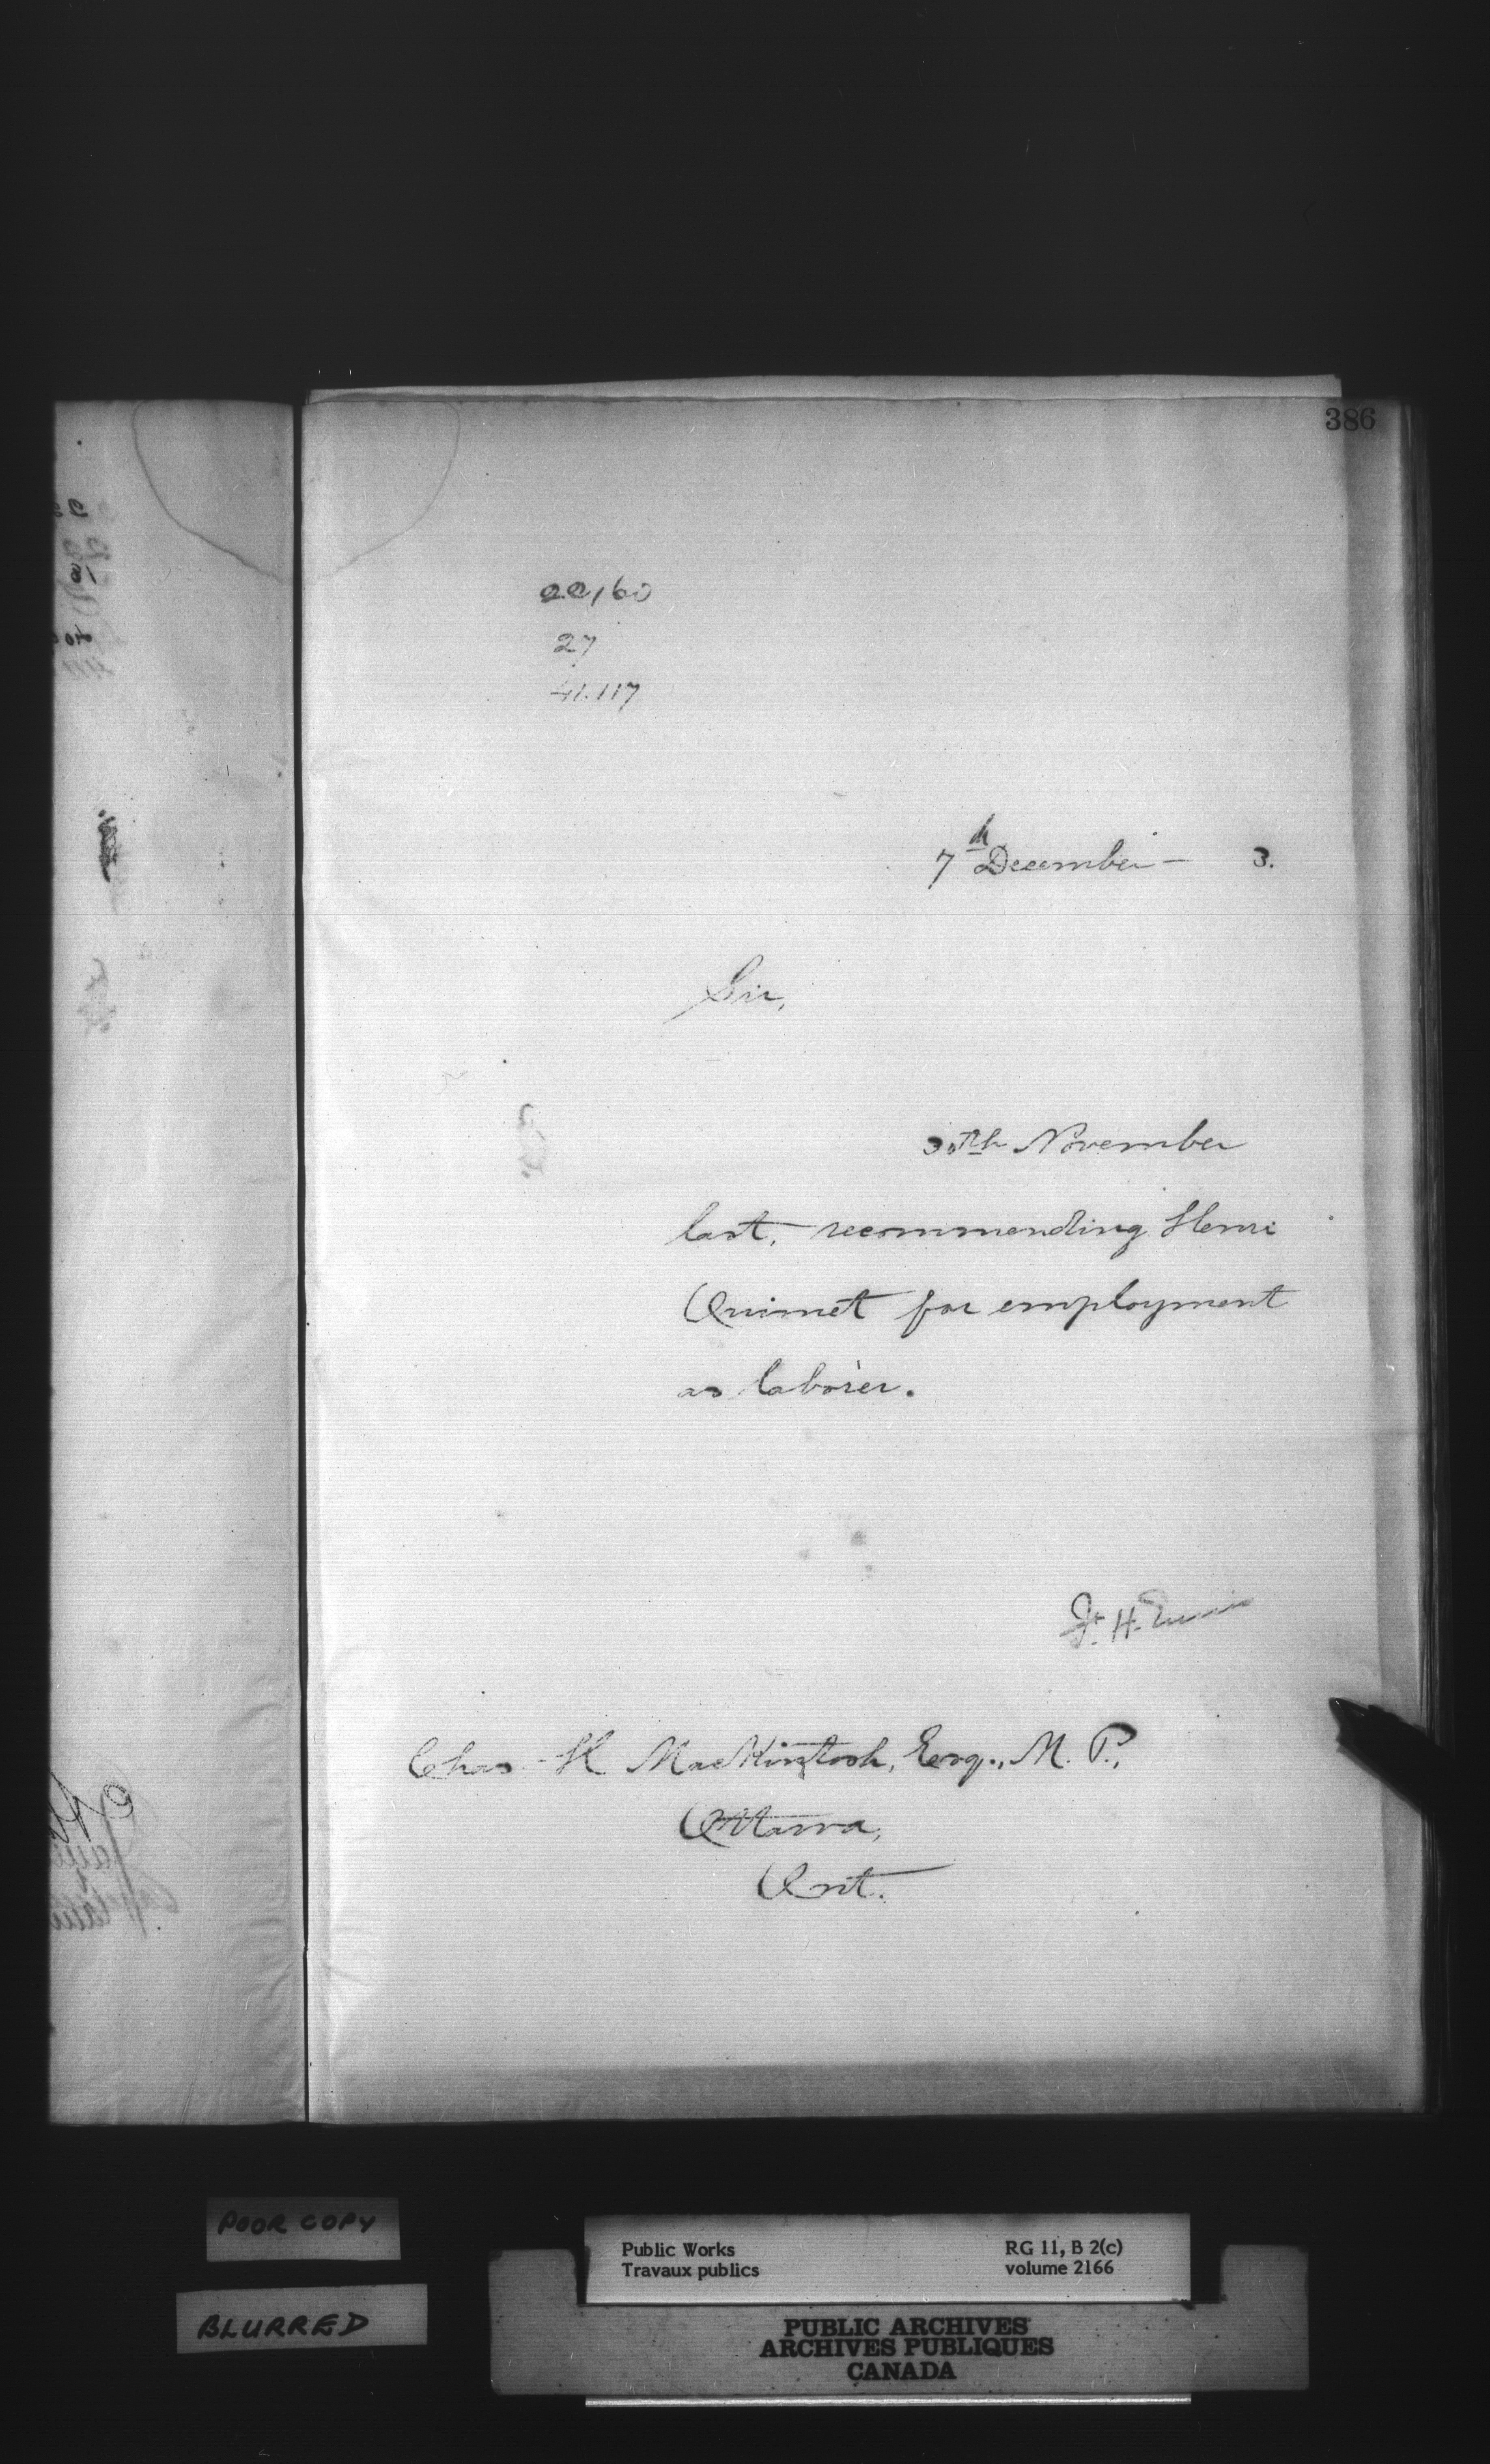 386
22160
27
41.117
7th December - 3.
Sir,
30th November
last, recommending Henri
Ouimet for employment
as laborer.
F. H. Ennis
Chas. H MacKintosh, Esq., M. P.,
Ottawa,
Ont.
POOR COPY
BLURRED
Public Works
Travaux publics
RG 11, B 2(c)
volume 2166
PUBLIC ARCHIVES
ARCHIVES PUBLIQUES
CANADA